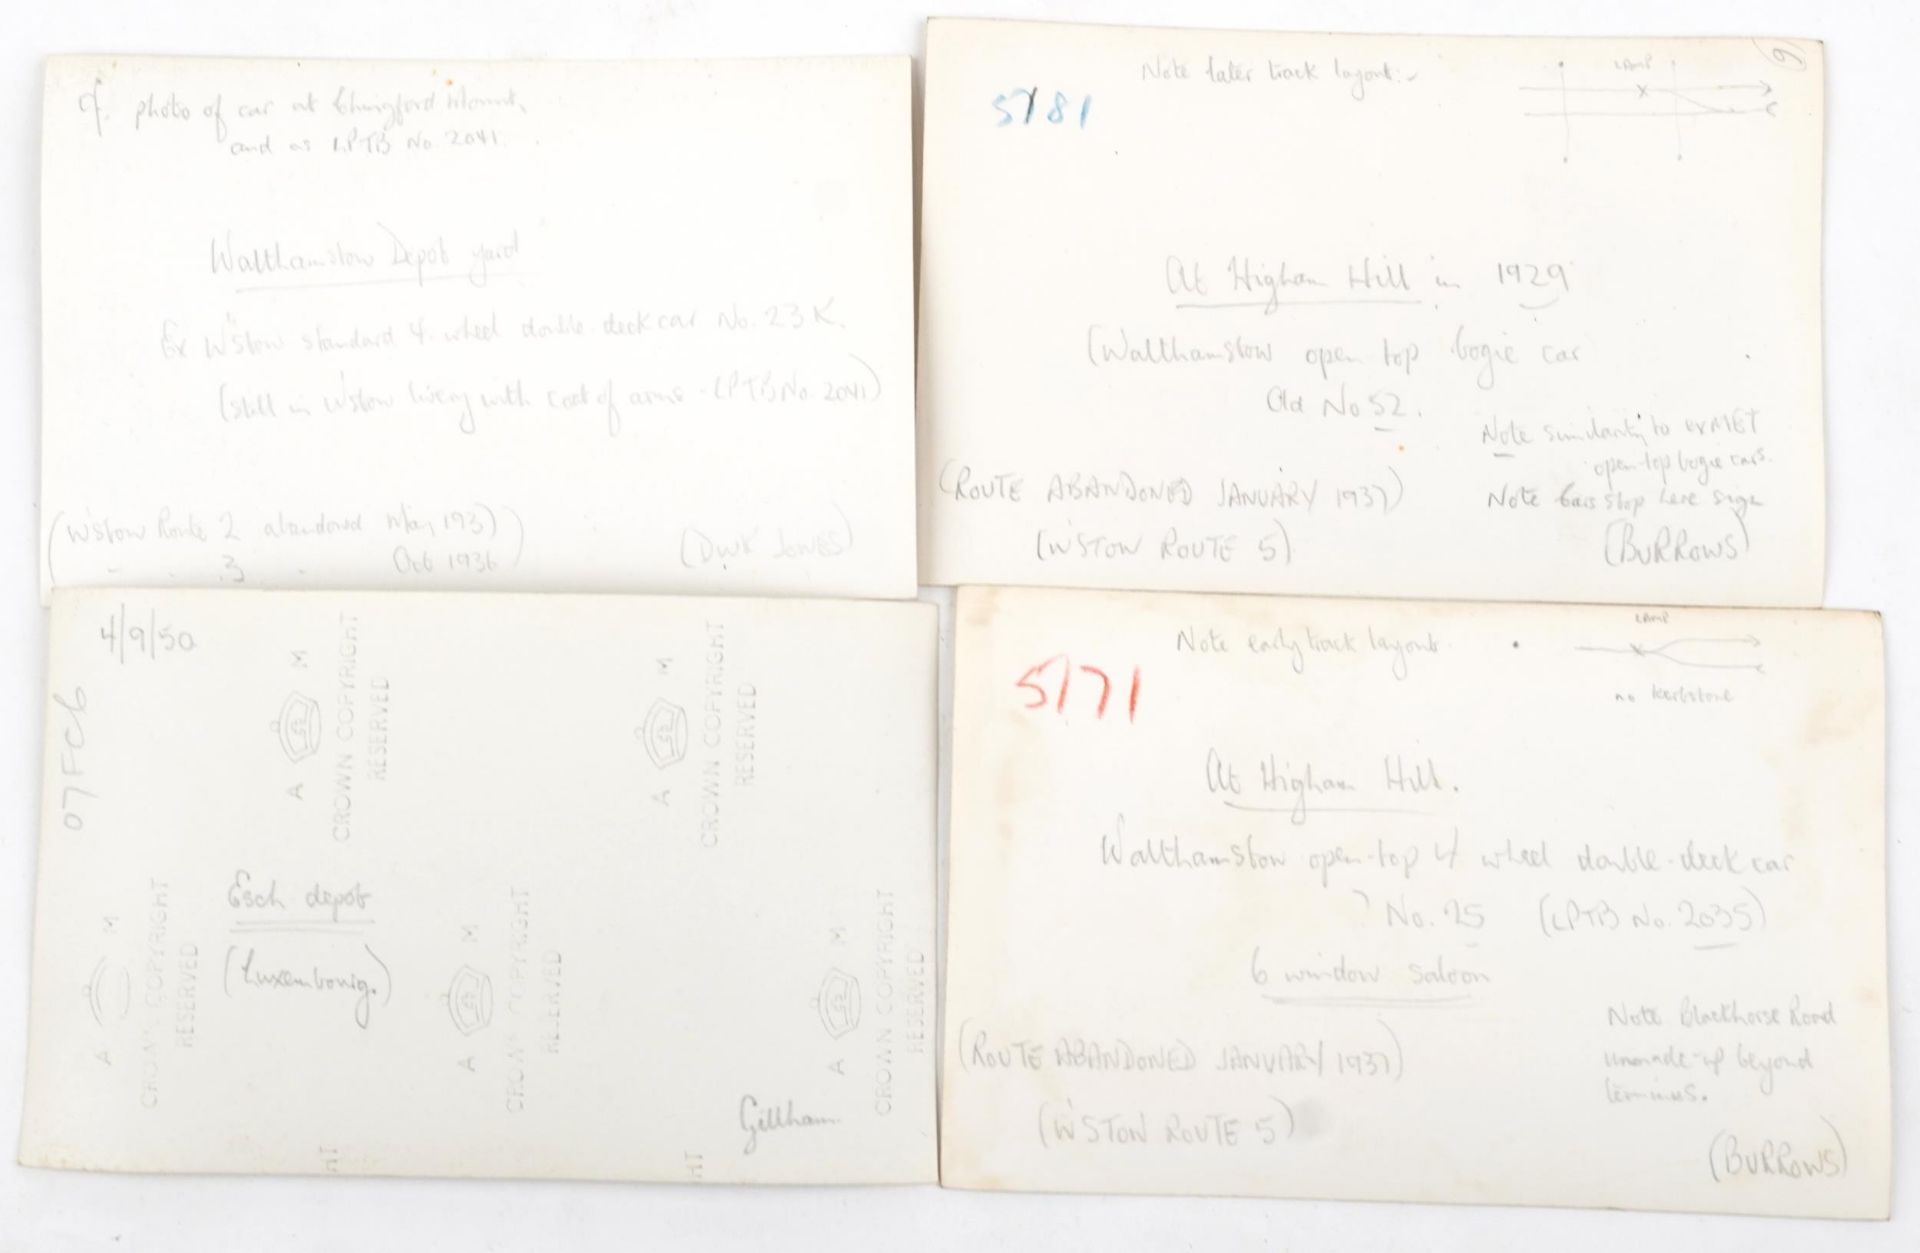 cf. photo of car at Chingford Mount,
and as LPTB No. 2041.
Walthamstow Depot yard
Ex W'stow standard 4-wheel double-deck car No. 23 K.
(still in W'stow livery with coat of arms - LPTB No. 2041)
(W'stow Route 2 abandoned May 1937)
" " 3 " Oct 1936
(DWK JONES)
Note later track layout:-
LAMP
5781
At Higham Hill in 1929
(Walthamstow open top bogie car
Old No 52.
Note similarity to exMET
open-top bogie cars.
Note Cars stop here sign
(ROUTE ABANDONED JANUARY 1937)
(W'STOW ROUTE 5)
(BURROWS)
4/9/50
07FC6
A M
CROWN COPYRIGHT
RESERVED
A M
CROWN COPYRIGHT
RESERVED
Esch depot
(Luxembourg.)
A M
CROWN COPYRIGHT
RESERVED
A M
CROWN COPYRIGHT
RESERVED
A M
CROWN COPYRIGHT
RESERVED
HT
HT
Gillham
Note early track layout.
LAMP
no kerbstone
5171
At Higham Hill.
Walthamstow open-top 4 wheel double-deck car
? No. 25 (LPTB No. 2035)
6 window saloon
Note Blackhorse Road
unmade-up beyond
terminus.
(ROUTE ABANDONED JANUARY 1937)
(W'STOW ROUTE 5)
(BURROWS)